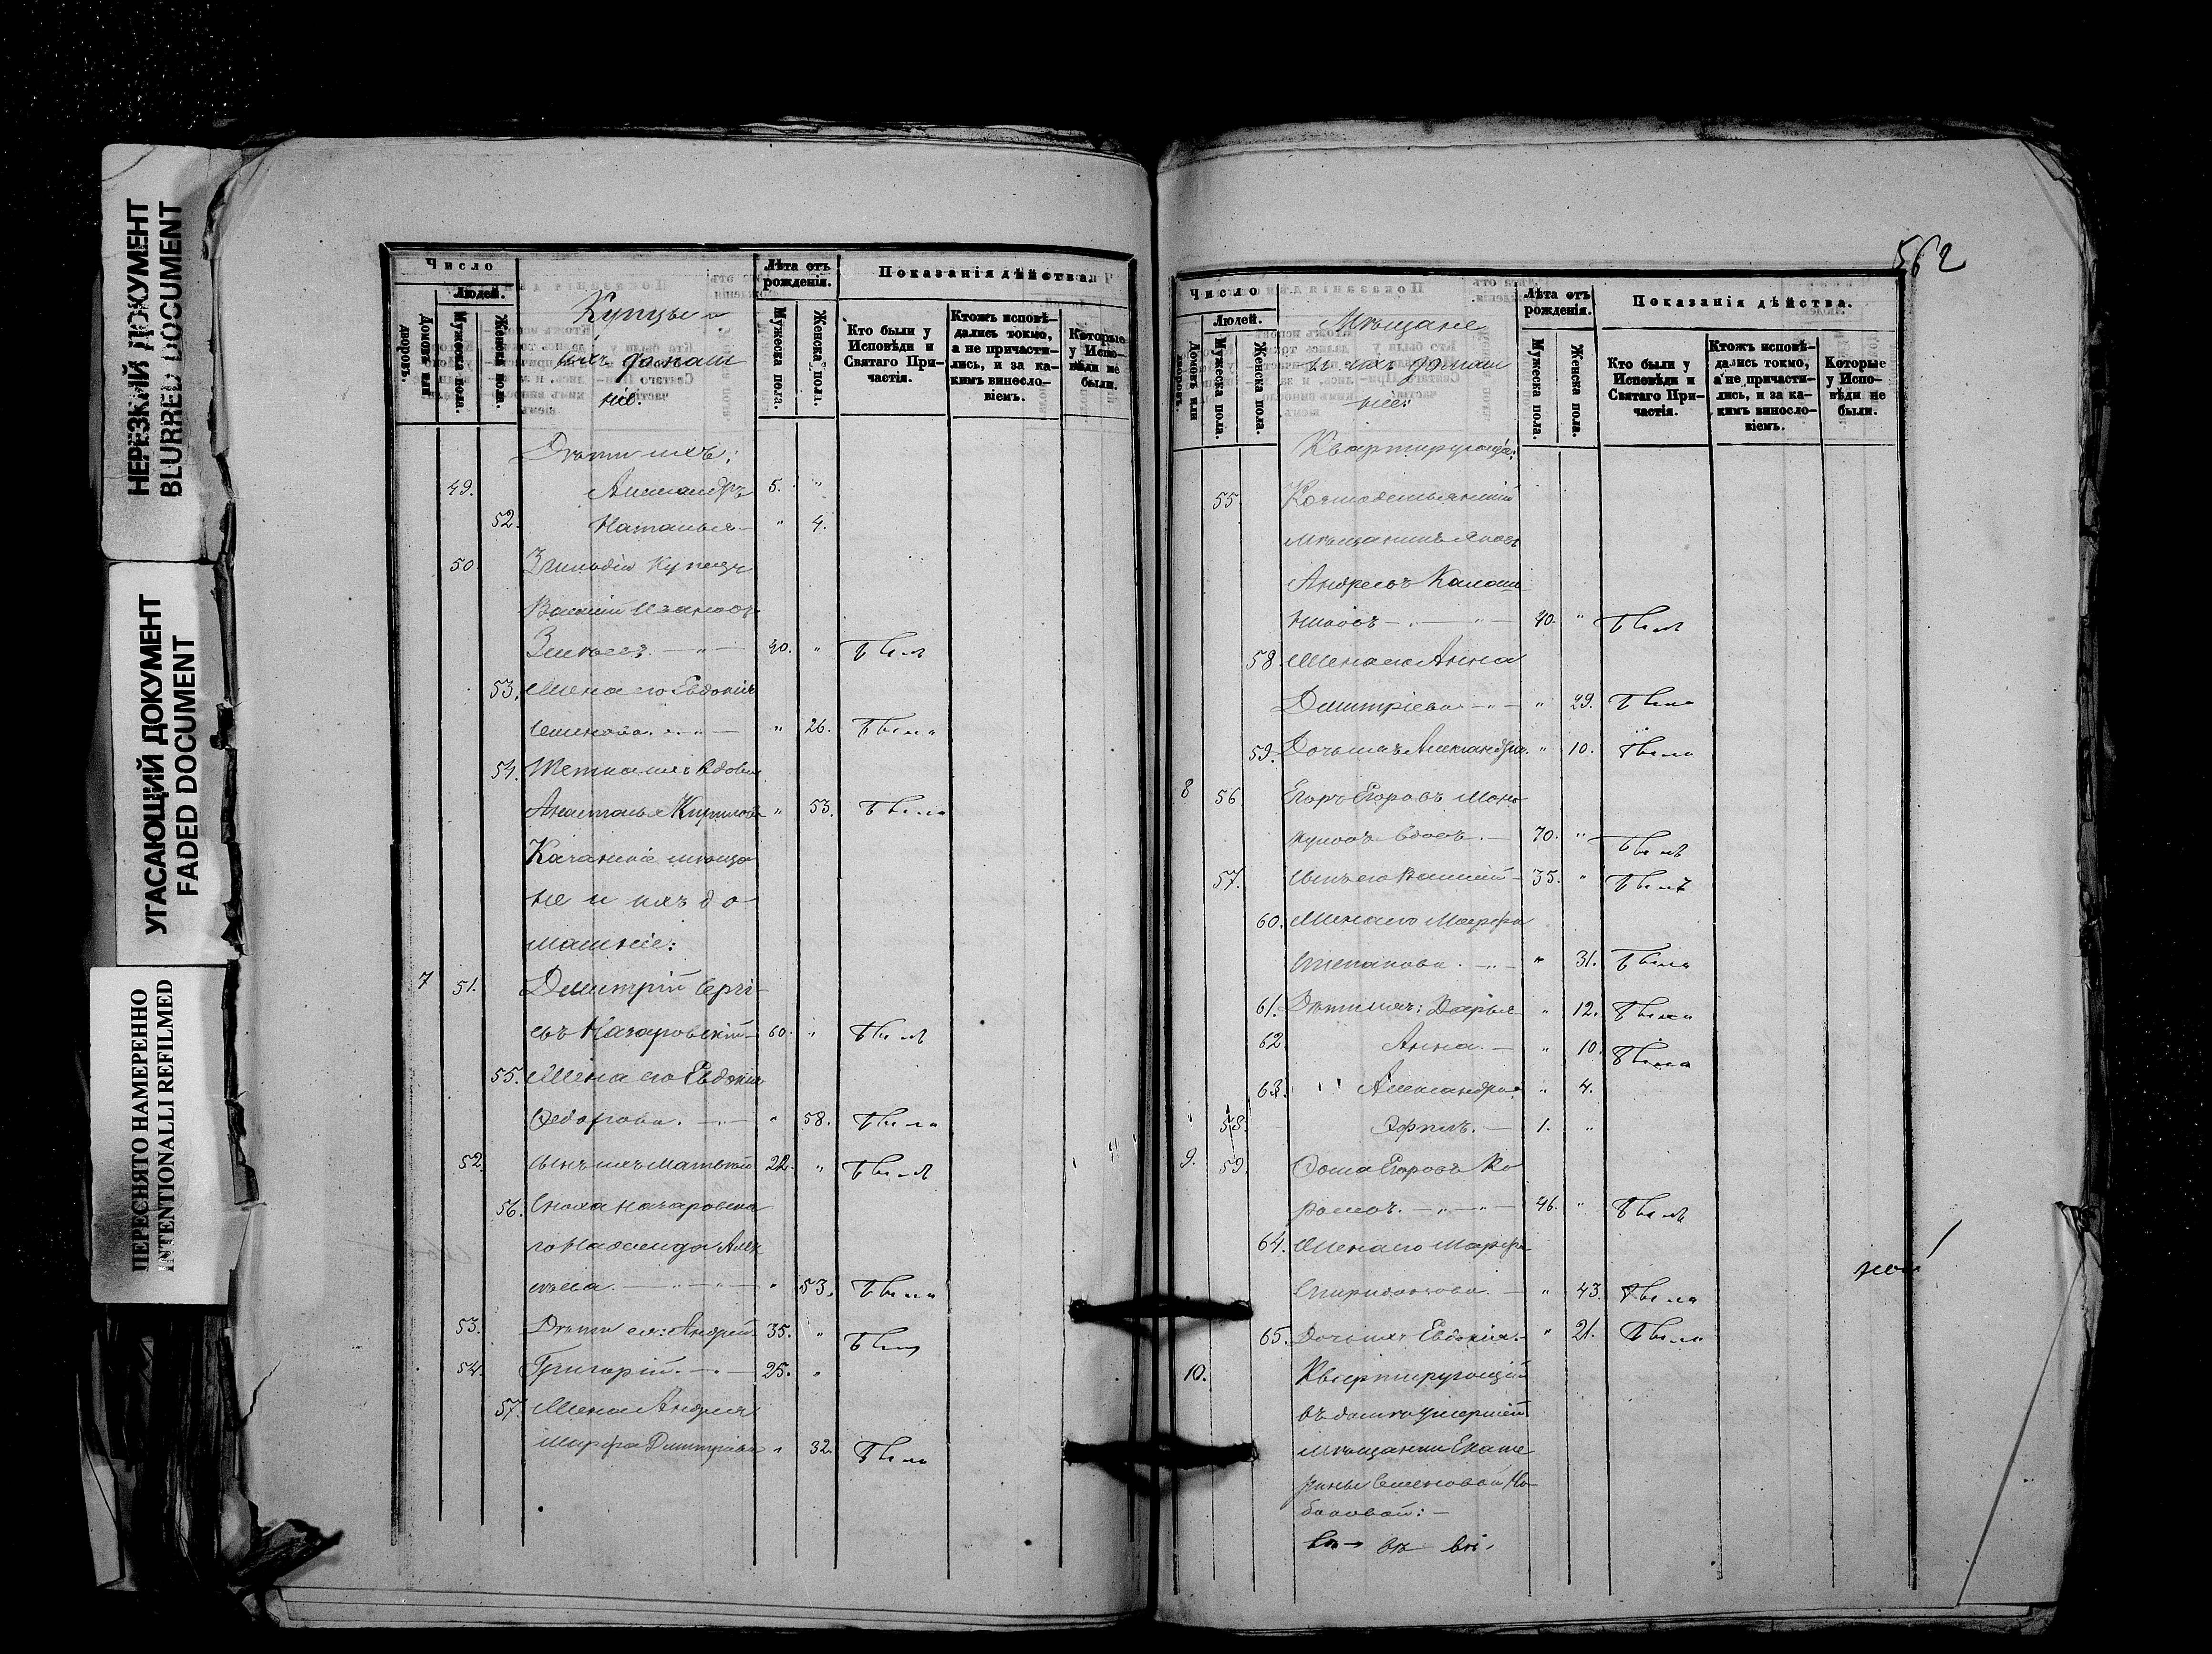 НЕРЕЗКИЙ ДОКУМЕНТ
BLURRED DOCUMENT
УГАСАЮЩИЙ ДОКУМЕНТ
FADED DOCUMENT
ПЕРЕСНЯТО НАМЕРЕННО
INTENTIONALLI REFILMED
Число
Людей.
Домовъ или дворовъ.
Мужеска пола.
Женска пола.
Купцы и
ихъ домаш
ніе.
Лѣта отъ рожденія.
Мужеска пола.
Женска пола.
Показанія дѣйства.
Кто были у Исповѣди и Святаго При-частія.
Ктожъ исповѣ-дались токмо, а не причасти-лись, и за ка-кимъ винosло-віемъ.
Которые у Испо-вѣди не были.
Дѣти ихъ:
49. Александръ 5. "
52. Наталья - " 4.
50. купецъ
Василій Ивановъ
40. " былъ
53. Жена его Евдокія
Семенова. " 26. была
54. Тетка ихъ вдова
Анастасья Кирилова " 53. была
мѣща
не и ихъ до
машніе:
7 51. Димитрій Сергѣ-
евъ 60. " былъ
55. Жена его Евдокія
Федорова. " 58. была
52. Сынъ ихъ Матвѣй 22. " былъ
56. Сноха
го Надежда Алек
сѣева. " 53. была
53. Дѣти ея: Андрей 35. "
54. Григорій. 25. "
57. Жена Андрея
Марфа Димитріева " 32. была
562
Число
Людей.
Домовъ или дворовъ.
Мужеска пола.
Женска пола.
Мѣщане
и ихъ домаш
ніе:
Лѣта отъ рожденія.
Мужеска пола.
Женска пола.
Показанія дѣйства.
Кто были у Исповѣди и Святаго При-частія.
Ктожъ исповѣ-дались токмо, а не причасти-лись, и за ка-кимъ винosло-віемъ.
Которые у Испо-вѣди не были.
Квартирующіе:
55. Козмодемьянскій
мѣщанинъ Яковъ
Андреевъ Калаш
никовъ 40. " былъ
58. Жена его Анна
Димитріева " 29. была
59. Дочь ихъ Александра. " 10. была
8 56 Егоръ Егоровъ
вдовъ. 70. " былъ
57. Сынъ его Василій 35. " былъ
60. Жена его Марфа
Степанова. " 31. была
61. Дѣти ихъ: Дарья " 12. была
62. Анна. " 10. была
63. Александра " 4.
58. 1. "
9. 59. Фома Егоровъ
46. " былъ
64. Жена его Марфа
Спиридонова. " 43. была
65. Дочь ихъ Евдокія. " 21. была
10. Квартирующій
въ домѣ умершей
мѣщанки Екате
рины Семеновой